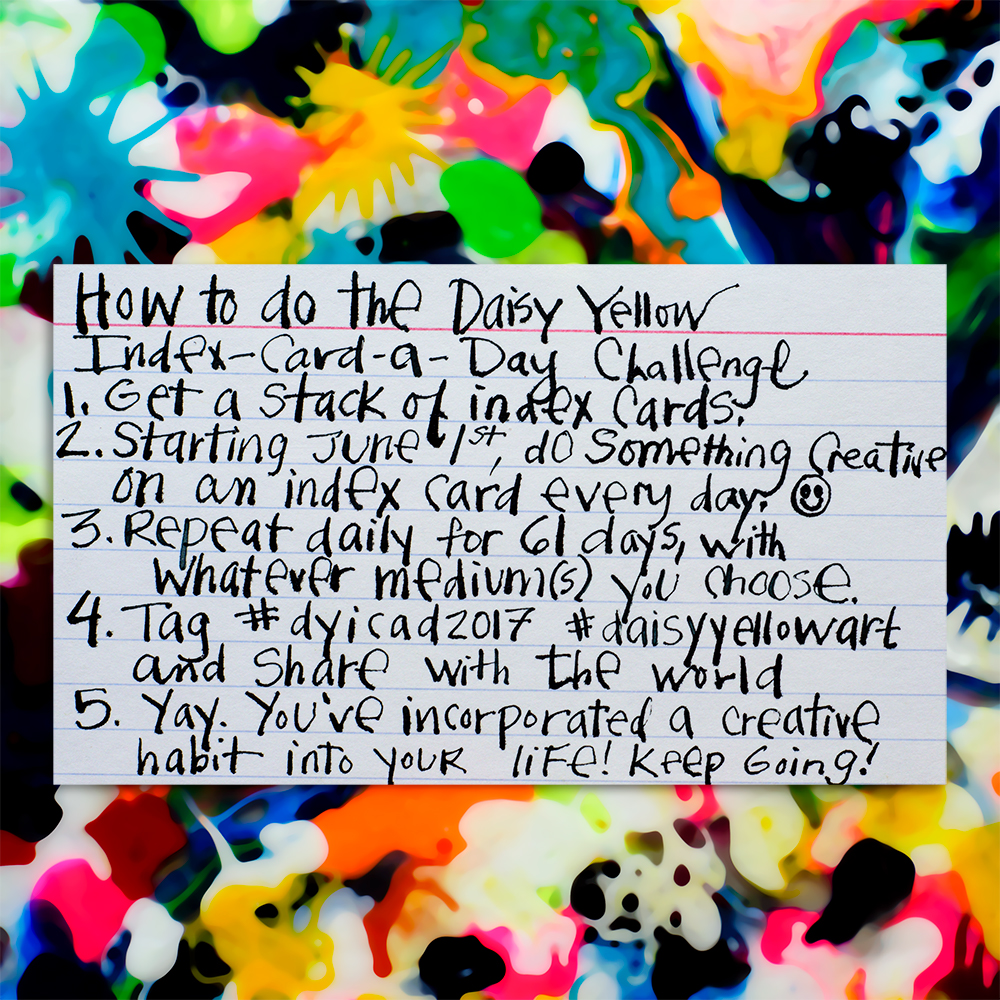 How to do the Daisy Yellow
Index-Card-a-Day Challenge
1. Get a stack of index cards.
2. Starting June 1st, do something creative
on an index card every day. ☺
3. Repeat daily for 61 days, with
whatever medium(s) you choose.
4. Tag #dyicad2017 #daisyyellowart
and share with the world
5. Yay. You've incorporated a creative
habit into your life! Keep Going!